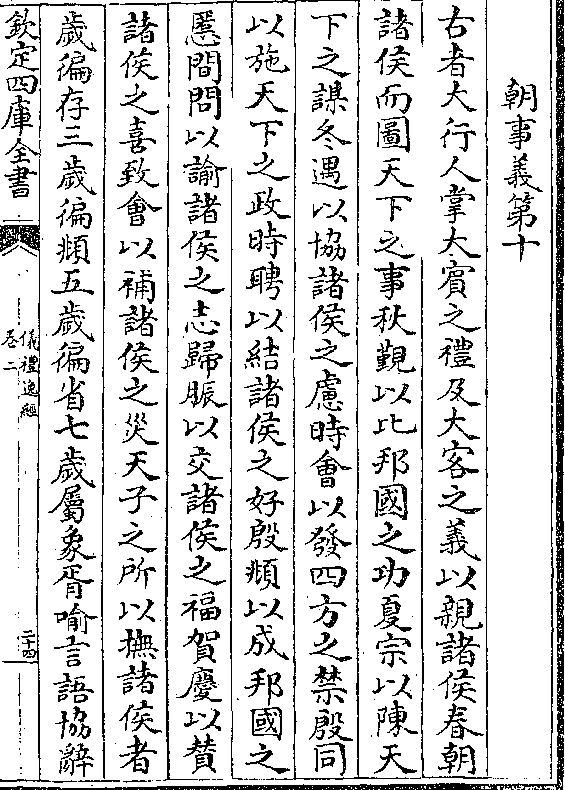 朝事義第十
古者大行人掌大賔之禮及大客之義以親諸侯春朝
諸侯而圖天下之事秋覲以比邦國之功夏宗以陳天
下之謀冬遇以協諸侯之慮時會以發四方之禁殷同
以施天下之政時聘以結諸侯之好殷頫以成邦國之
慝間問以諭諸侯之志歸脤以交諸侯之福賀慶以賛
諸侯之喜致會以補諸侯之災天子之所以撫諸侯者
歲徧存三歲徧頫五歲徧省七歲屬象胥喻言語協辭
欽定四庫全書
儀禮逸經
卷二
二十四